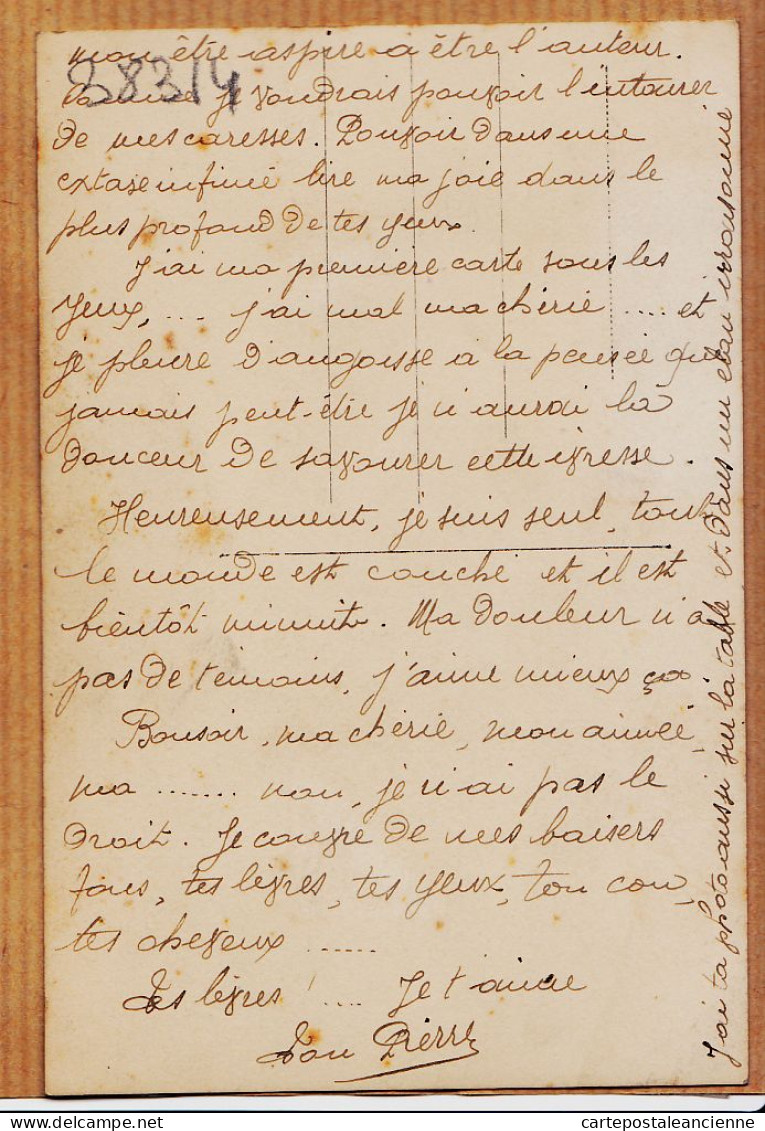 mon être aspire a être l'auteur.
38314
je voudrais pouvoir l'entourer
de mes caresses. Pouvoir dans une
extase infinie lire ma joie dans le
plus profond de tes yeux.
J'ai ma première carte sous les
yeux, .... j'ai mal ma chérie .... et
je pleure d'angoisse a la pensée que
jamais peut-être je n'aurai la
douceur de savourer cette ivresse.
Heureusement, je suis seul, tout
le monde est couché et il est
bientôt minuit. Ma douleur n'a
pas de témoins, j'aime mieux ça
Bonsoir, ma chérie, mon aimée,
ma ....... non, je n'ai pas le
droit. Je couvre de mes baisers
fous, tes lèvres, tes yeux, ton cou,
tes cheveux ......
Tes lèvres ! .... Je t'aime
Ton Pierre
J'ai ta photo aussi sur la table et dans un élan irraisonné
delcampe.net
cartepostaleancienne